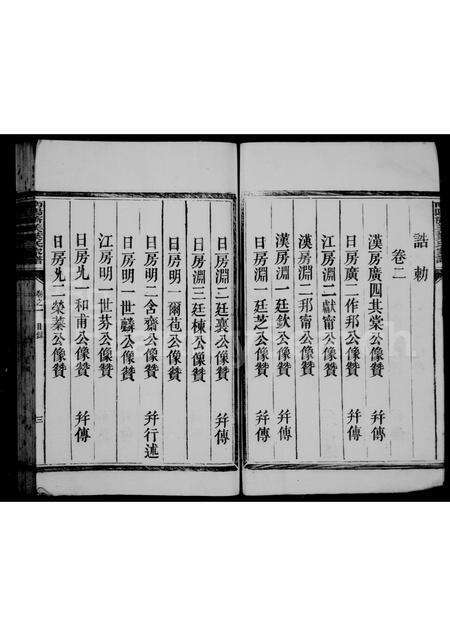 誥勅
卷二
漢房廣四其棠公像贊 并傳
日房廣二作邦公像贊 并傳
江房淵二獻甯公像贊
漢房淵二邦甯公像贊 并傳
漢房淵一廷欽公像贊 并傳
日房淵一廷芝公像贊 并傳
日房淵二廷襄公像贊 并傳
日房淵三廷棟公像贊
日房明一爾苞公像贊
日房明二含齋公像贊 并行述
日房明一世麟公像贊
江房明一世芬公像贊
日房先一和甫公像贊 并傳
日房先二榮蓁公像贊
卷之一 目錄 三